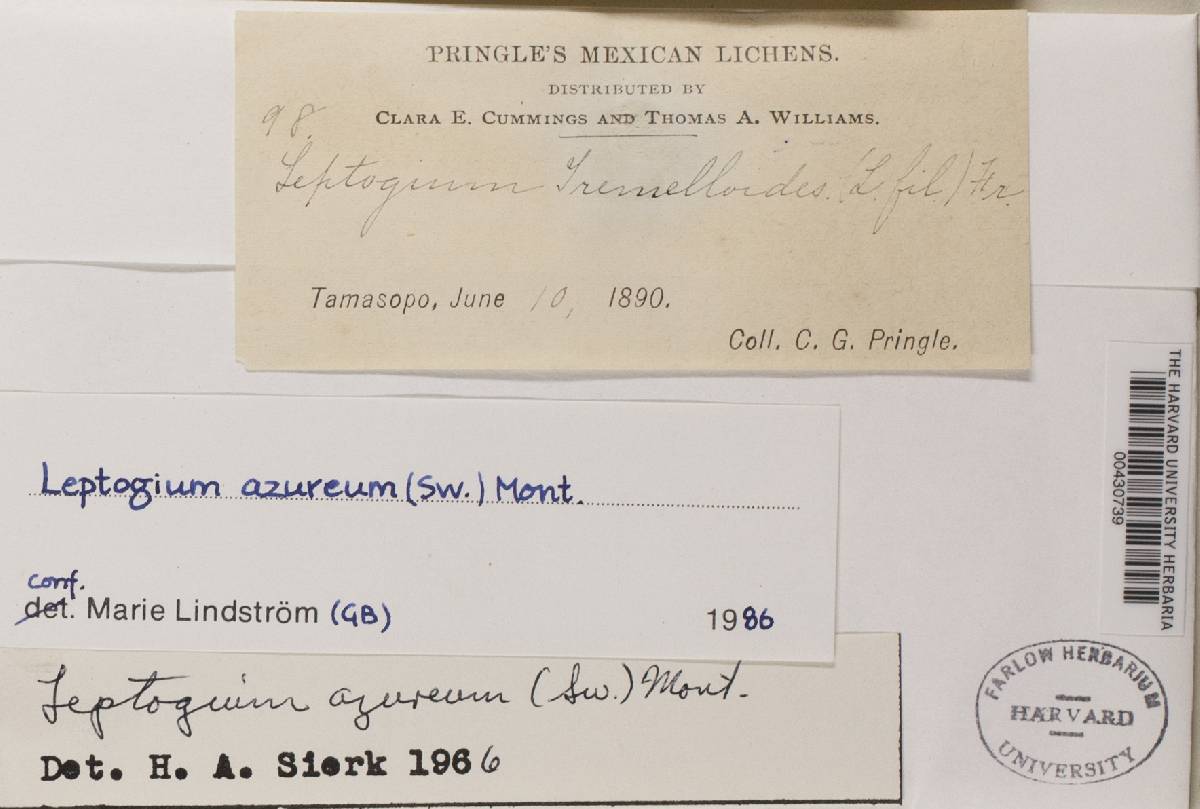 PRINGLE'S MEXICAN LICHENS.
DISTRIBUTED BY
CLARA E. CUMMINGS AND THOMAS A. WILLIAMS.
98.
Leptogium Tremelloides. (L. fil.) Fr.
Tamasopo, June 10, 1890.
Coll. C. G. Pringle.
Leptogium azureum (Sw.) Mont.
conf.
det. Marie Lindström (GB) 1986
Leptogium azureum (Sw.) Mont.
Det. H. A. Sierk 1966
THE HARVARD UNIVERSITY HERBARIA
00430739
FARLOW HERBARIUM
HARVARD
UNIVERSITY